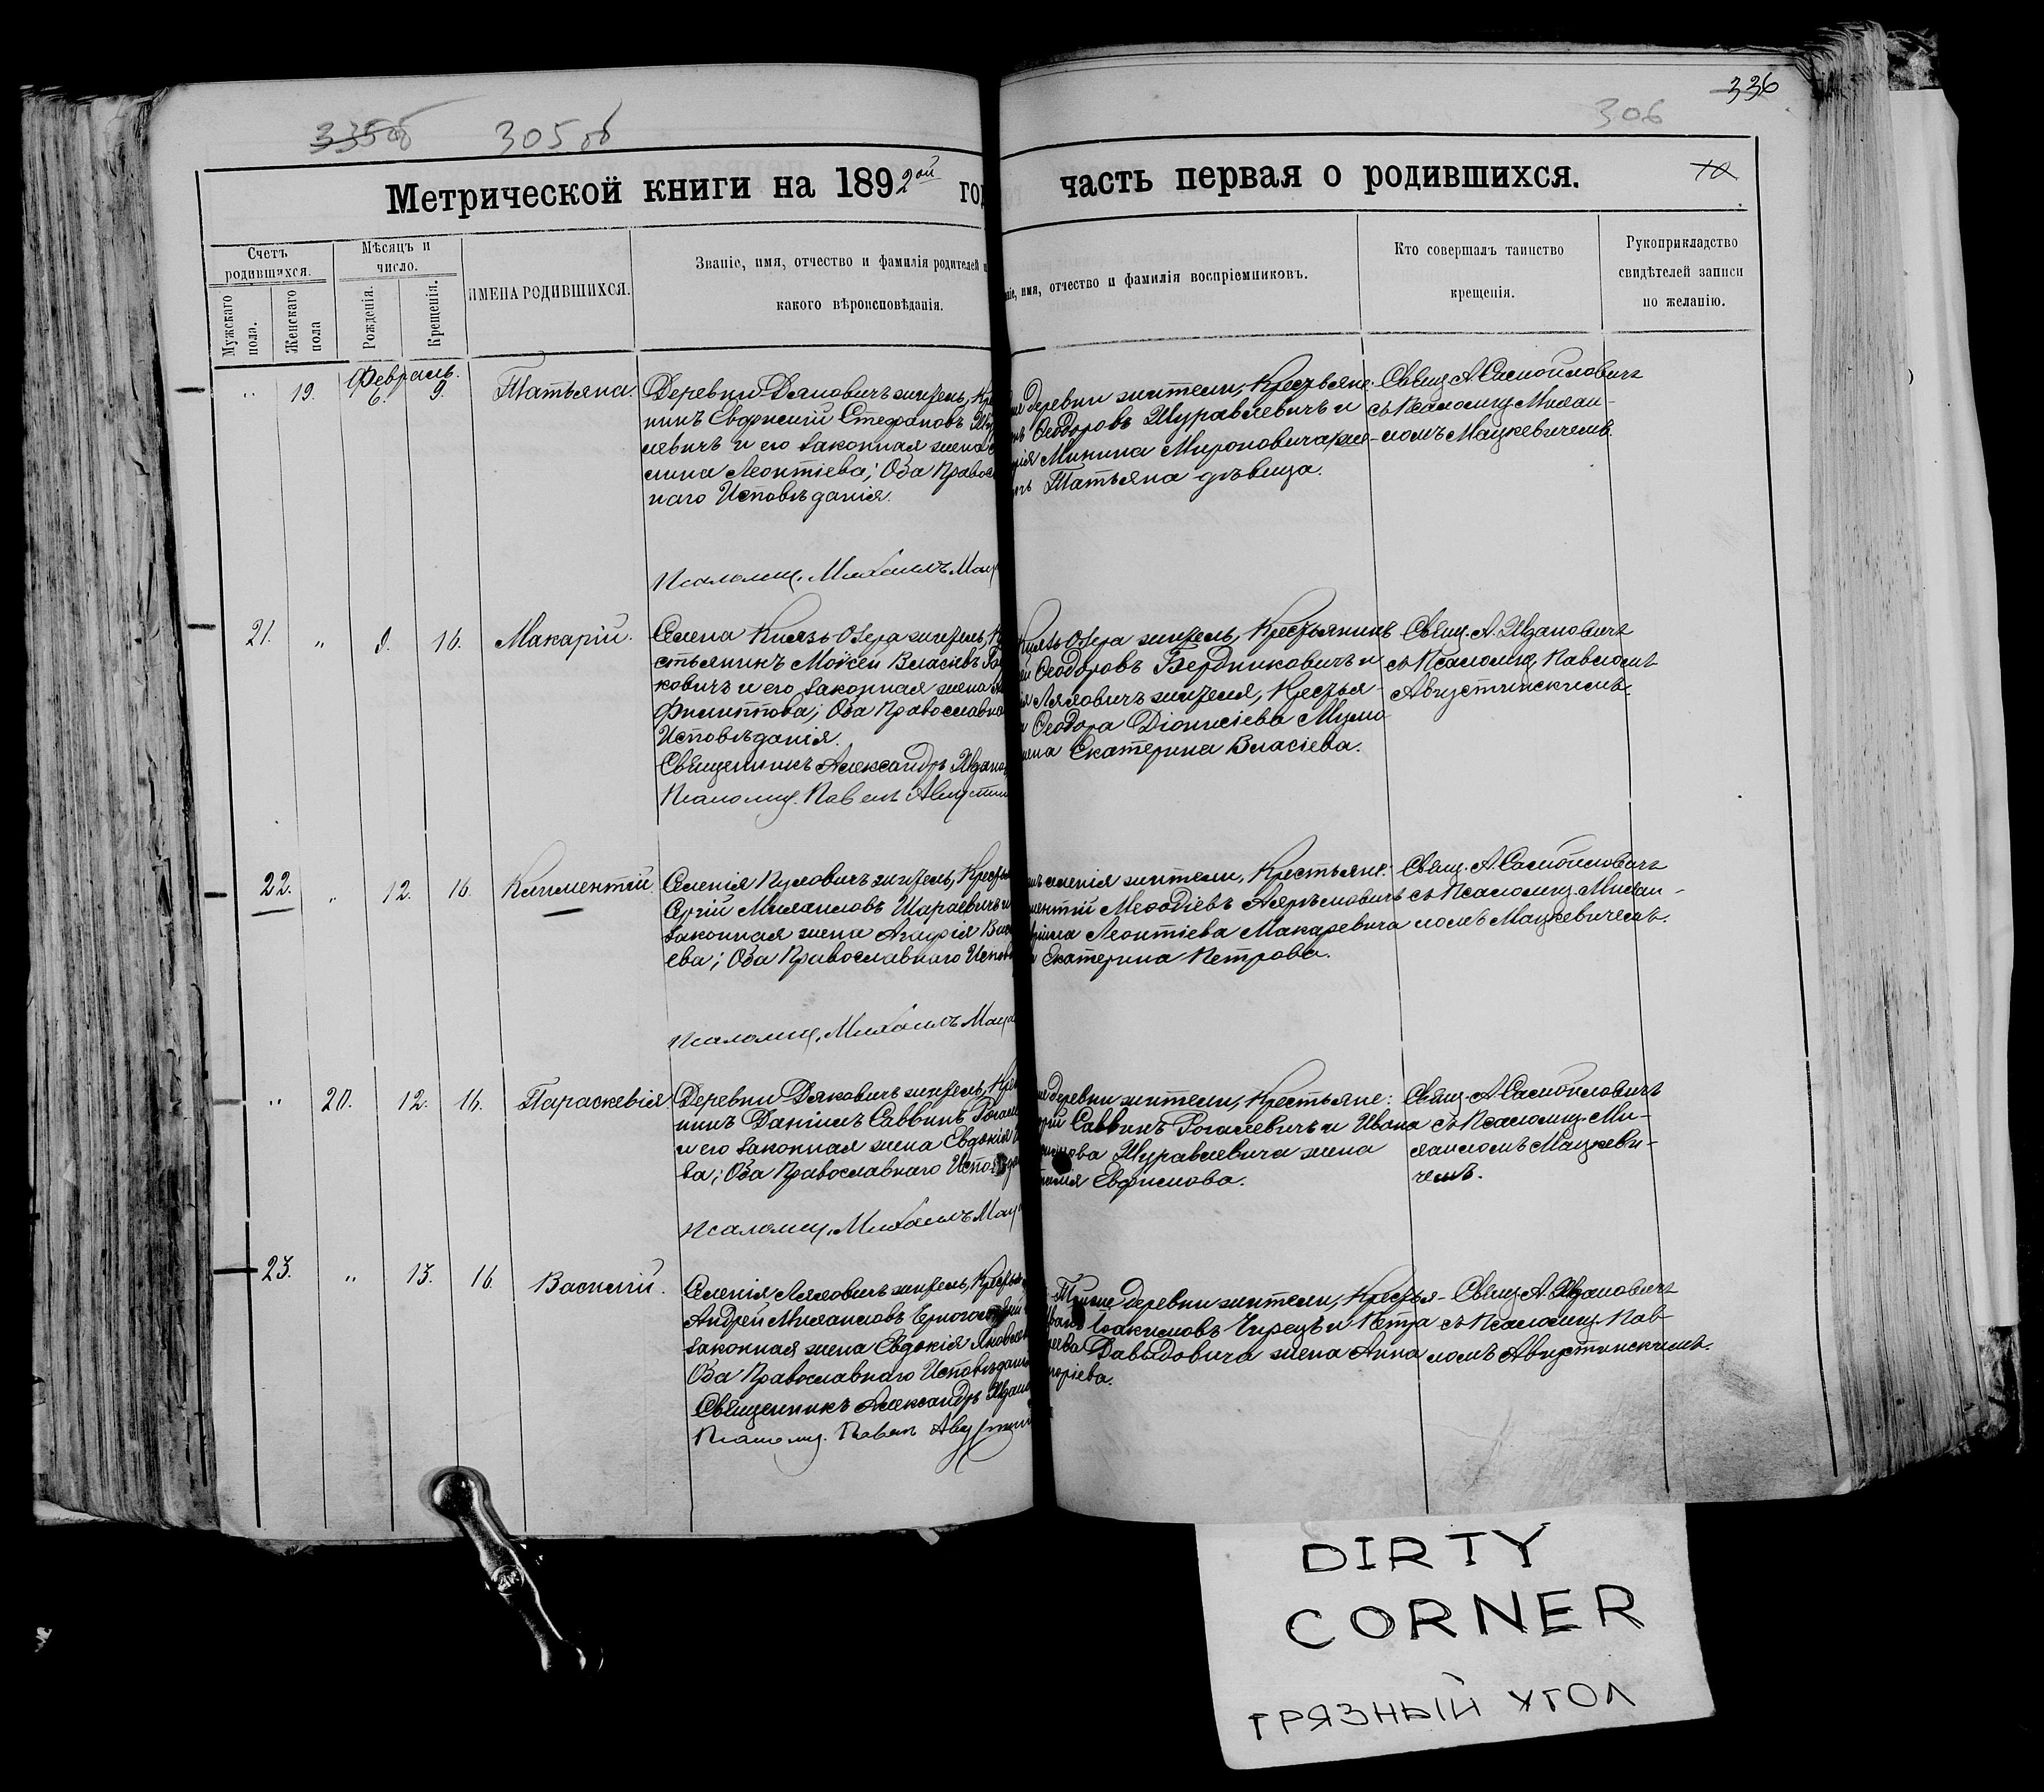 335об 305об
306 336
Метрической книги на 1892ой год часть первая о родившихся. 10
Счетъ родившихся.
Мужскаго пола.
Женскаго пола
Мѣсяцъ и число.
Рожденія.
Крещенія.
ИМЕНА РОДИВШИХСЯ.
Званіе, имя, отчество и фамилія родителей и
какого вѣроисповѣданія.
имя, отчество и фамилія воспріемниковъ.
Кто совершалъ таинство
крещенія.
Рукоприкладство
свидѣтелей записи
по желанію.
Февраль.
" 19. 6. 9. Татьяна.
Деревни Дяковичъ житель, Кре
нинъ Евфимій Стефановъ Жу
левичъ и его законная жена
Леонтіева; Оба Правос
наго Исповѣданія.
Псаломщ. Михаилъ Мац
деревни жители, Крестьяне:
Ѳеодоровъ Журавлевичъ и
Минина Мироновича
Татьяна дѣвица.
Свящ. А. Самойловичъ
съ Псаломщ. Михаи-
ломъ Мацкевичемъ.
21. " 9. 16. Макарій.
Селена Князь-Озера житель, Кре
стьянинъ Моѵсей Власіевъ
ковичъ и его законная жена
Филиппова; Оба Православна
Исповѣданія.
Священникъ Александръ Ждано
Псаломщ. Павелъ Августин
Князь-Озера житель, Крестьянинъ
Ѳеодоровъ Бердниковичъ и
Ляховичъ жителя, Крестья-
Ѳеодора Діонисіева
жена Екатерина Власіева.
Свящ. А. Ждановичъ
съ Псаломщ. Павломъ
Августинскимъ.
22. " 12. 16. Климентій.
Селенія Пуховичъ житель, Кресть
Сергій Михаиловъ Шараевичъ и
законная жена Агафія Вас
ева; Оба Православнаго Испов
Псаломщ. Михаилъ Маца
селенія жители, Крестьяне:
Меѳодіевъ
Леонтіева Макаревича
Екатерина Петрова.
Свящ. А. Самойловичъ
съ Псаломщ. Михаи-
ломъ Мацкевичемъ.
" 20. 12. 16. Параскевія.
Деревни Дяковичъ житель, Кре
нинъ Даніилъ Саввинъ Рогале
и его законная жена Евдокія
ва; Оба Православнаго Испов
Псаломщ. Михаилъ Мац
деревни жители, Крестьяне:
Саввинъ Рогалевичъ и Ивана
Журавлевича жена
Евфимова.
Свящ. А. Самойловичъ
съ Псаломщ. Ми-
хаиломъ Мацкеви-
чемъ.
23. " 13. 16. Василій.
Селенія Ляховичъ житель, Кресть
Андрей Михаиловъ
законная жена Евдокія Яковле
Оба Православнаго Исповѣдані
Священникъ Александръ Ждан
Псаломщ. Павелъ Августин
деревни жители, Крестья-
Іоакимовъ Чирецъ и Петра
Давыдовича жена Анна
Свящ. А. Ждановичъ
съ Псаломщ. Пав-
ломъ Августинскимъ.
DIRTY
CORNER
ГРЯЗНЫЙ УГОЛ